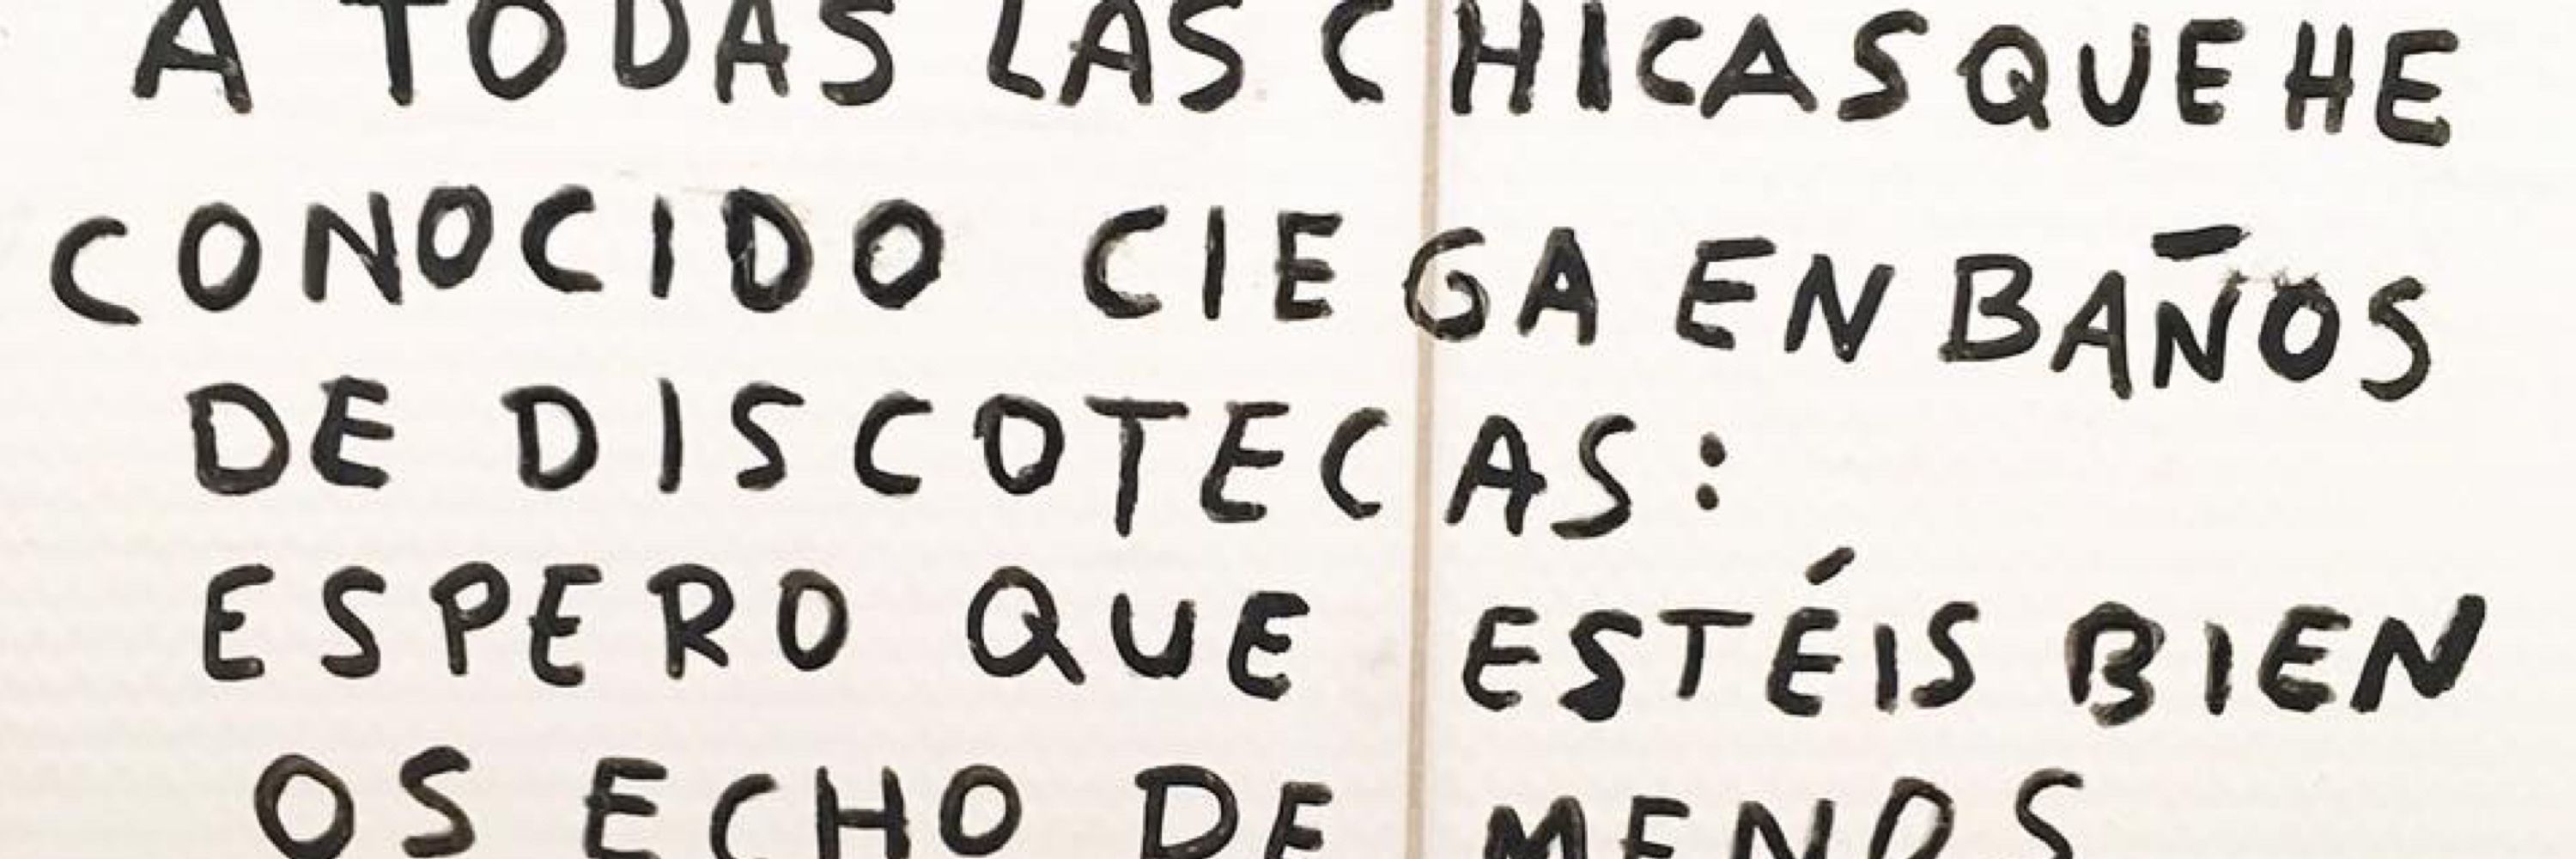 A TODAS LAS CHICAS QUE HE
CONOCIDO CIEGA EN BAÑOS
DE DISCOTECAS:
ESPERO QUE ESTÉIS BIEN
OS ECHO DE MENOS